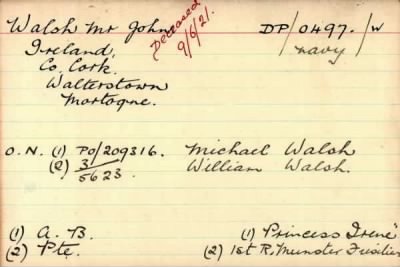 Walsh Mr John
Deceased 9/6/21.
DP/0497./W
Navy
Ireland,
Co. Cork.
Walterstown
Mortogne.
O.N. (1) PO/209316. Michael Walsh
(2) 3/5623. William Walsh.
(1) A.B. (1) Princess Irene
(2) Pte. (2) 1st R. Munster Fusilier